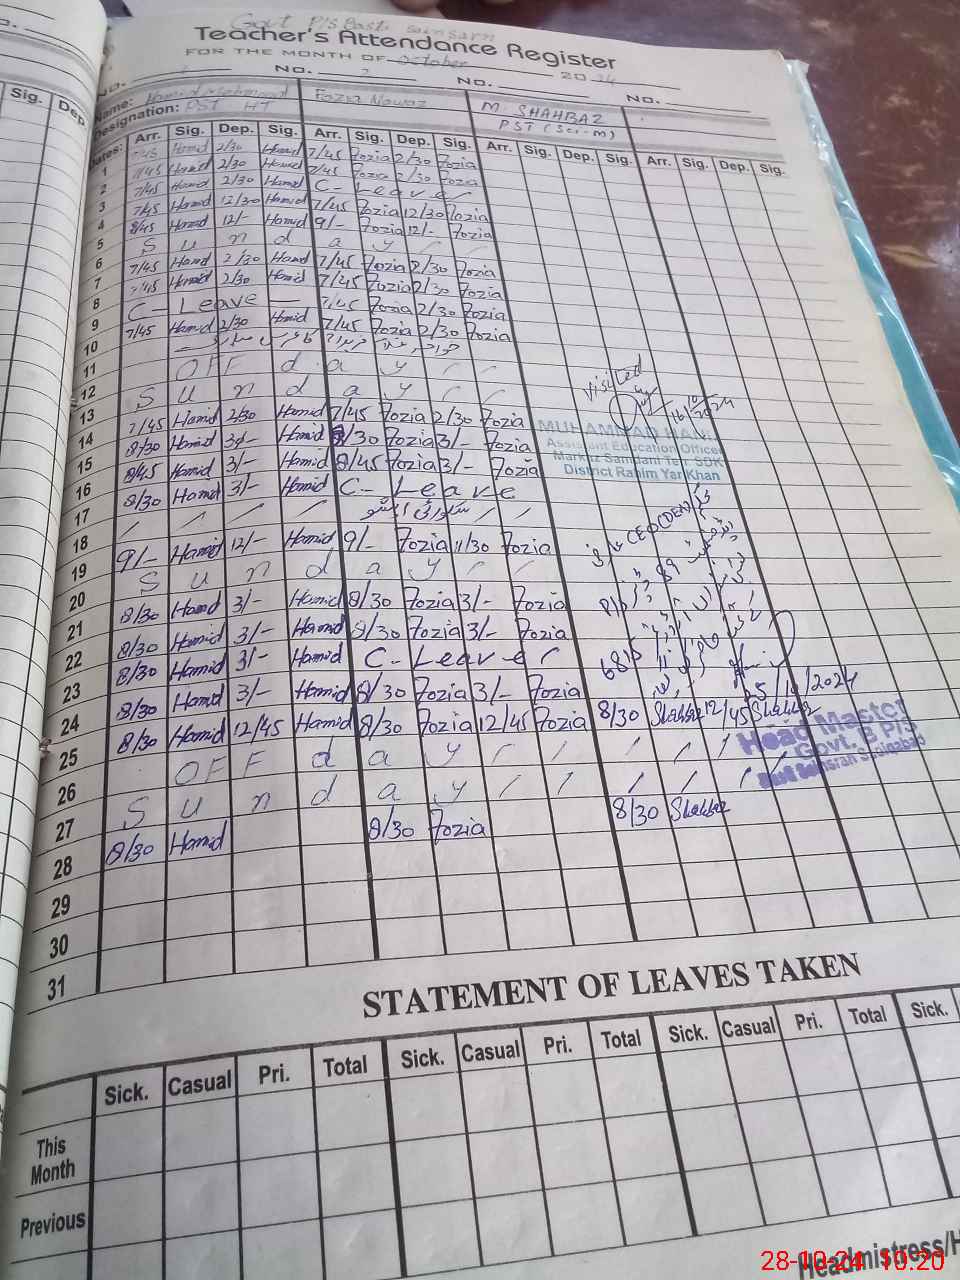 Govt P/S Basti Sainsarn
Teacher's Attendance Register
FOR THE MONTH OF October 2024
No. 1 No. 2 No. No.
Name: Hamid Fozia Nawaz M. SHAHBAZ
Designation: PST HT PST (Sci-M)
Dates: Arr. Sig. Dep. Sig. Arr. Sig. Dep. Sig. Arr. Sig. Dep. Sig. Arr. Sig. Dep. Sig.
1 7/45 Hamid 2/30 Hamid 7/45 Fozia 2/30 Fozia
2 7/45 Hamid 2/30 Hamid 7/45 Fozia 2/30 Fozia
3 7/45 Hamid 2/30 Hamid C- Leave
4 7/45 Hamid 12/30 Hamid 7/45 Fozia 12/30 Fozia
5 8/45 Hamid 12/- Hamid 9/- Fozia 12/- Fozia
6 Sunday
7 7/45 Hamid 2/30 Hamid 7/45 Fozia 2/30 Fozia
8 7/45 Hamid 2/30 Hamid 7/45 Fozia 2/30 Fozia
9 C- Leave — 7/45 Fozia 2/30 Fozia
10 7/45 Hamid 2/30 Hamid 7/45 Fozia 2/30 Fozia
11
12 OFF day
13 Sunday
14 7/45 Hamid 2/30 Hamid 7/45 Fozia 2/30 Fozia
15 8/30 Hamid 3/- Hamid 8/30 Fozia 3/- Fozia
16 8/45 Hamid 3/- Hamid 8/45 Fozia 3/- Fozia
17 8/30 Hamid 3/- Hamid C- Leave
18
19 9/- Hamid 12/- Hamid 9/- Fozia 11/30 Fozia
20 Sunday
21 8/30 Hamid 3/- Hamid 8/30 Fozia 3/- Fozia
22 8/30 Hamid 3/- Hamid 8/30 Fozia 3/- Fozia
23 8/30 Hamid 3/- Hamid C- Leave
24 8/30 Hamid 3/- Hamid 8/30 Fozia 3/- Fozia
25 8/30 Hamid 12/45 Hamid 8/30 Fozia 12/45 Fozia 8/30 Shahbaz 12/45 Shahbaz
26 OFF day
27 Sunday
28 8/30 Hamid 8/30 Fozia 8/30 Shahbaz
29
30
31
Visited
16/10/2024
MUHAMMAD HANIF
Assistant Education Officer
Markaz Samdani Teh. SDK
District Rahim Yar Khan
CEO (DEA)
25/10/2024
Head Master
Govt. B P/S
STATEMENT OF LEAVES TAKEN
Sick. Casual Pri. Total Sick. Casual Pri. Total Sick. Casual Pri. Total Sick.
This Month
Previous
Headmistress/H
Sig. Dep
28-10-24 10:20